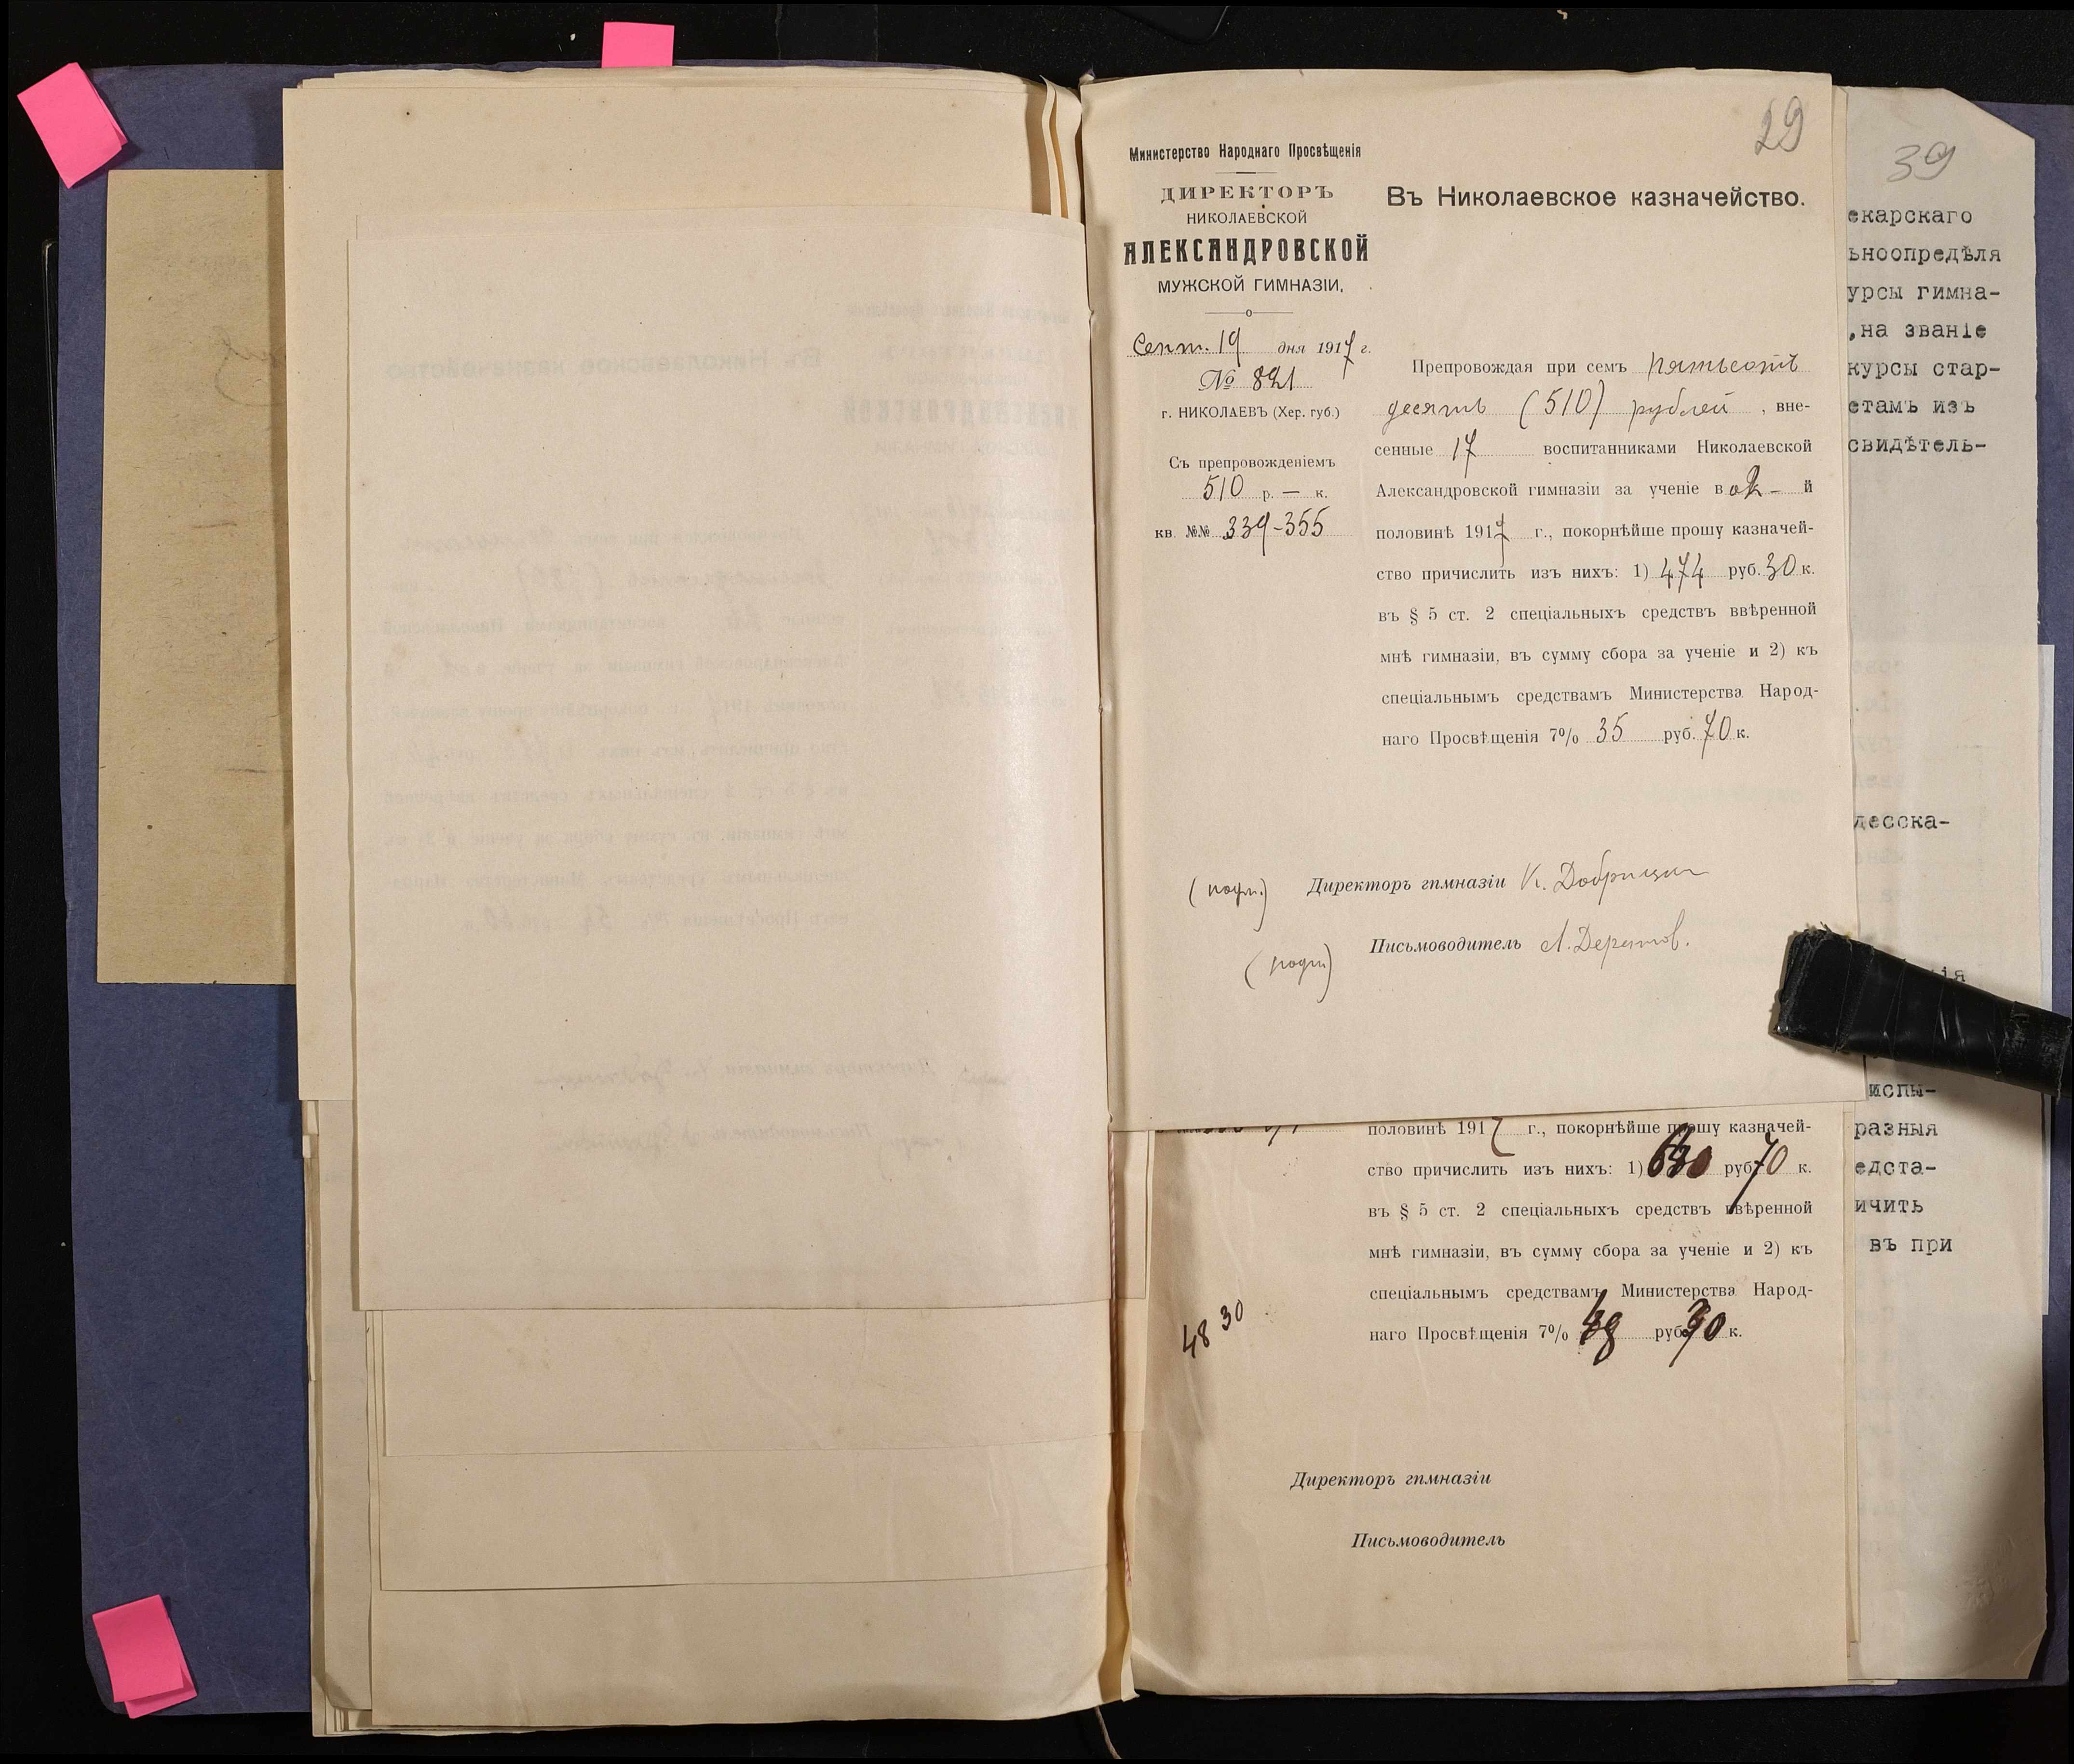 29
Министерство Народнаго Просвѣщенія
ДИРЕКТОРЪ
НИКОЛАЕВСКОЙ
АЛЕКСАНДРОВСКОЙ
МУЖСКОЙ ГИМНАЗІИ.
Сент. 19 дня 1917 г.
№ 821
г. НИКОЛАЕВЪ (Хер. губ.)
Съ препровожденіемъ
510 р. — к.
кв. №№ 339-355
Въ Николаевское казначейство.
Препровождая при семъ пятьсотъ
десять (510) рублей, вне-
сенные 17 воспитанниками Николаевской
Александровской гимназіи за ученіе в й
половинѣ 1917 г., покорнѣйше прошу казначей-
ство причислить изъ нихъ: 1) 474 руб. 30 к.
въ § 5 ст. 2 спеціальныхъ средствъ ввѣренной
мнѣ гимназіи, въ сумму сбора за ученіе и 2) къ
спеціальнымъ средствамъ Министерства Народ-
наго Просвѣщенія 7% 35 руб. 70 к.
(подп.) Директоръ гимназіи К. Добрицин
(подп) Письмоводитель
половинѣ 1917 г., покорнѣйше прошу казначей-
ство причислить изъ нихъ: 1) руб. 70 к.
въ § 5 ст. 2 спеціальныхъ средствъ ввѣренной
мнѣ гимназіи, въ сумму сбора за ученіе и 2) къ
спеціальнымъ средствамъ Министерства Народ-
наго Просвѣщенія 7% 48 руб. 30 к.
48 30
Директоръ гимназіи
Письмоводитель
39
екарскаго
ьноопредѣля
урсы гимна-
,на званіе
курсы стар-
етамъ изъ
свидѣтель-
десска-
ія
испы-
разныя
едста-
ичить
въ при